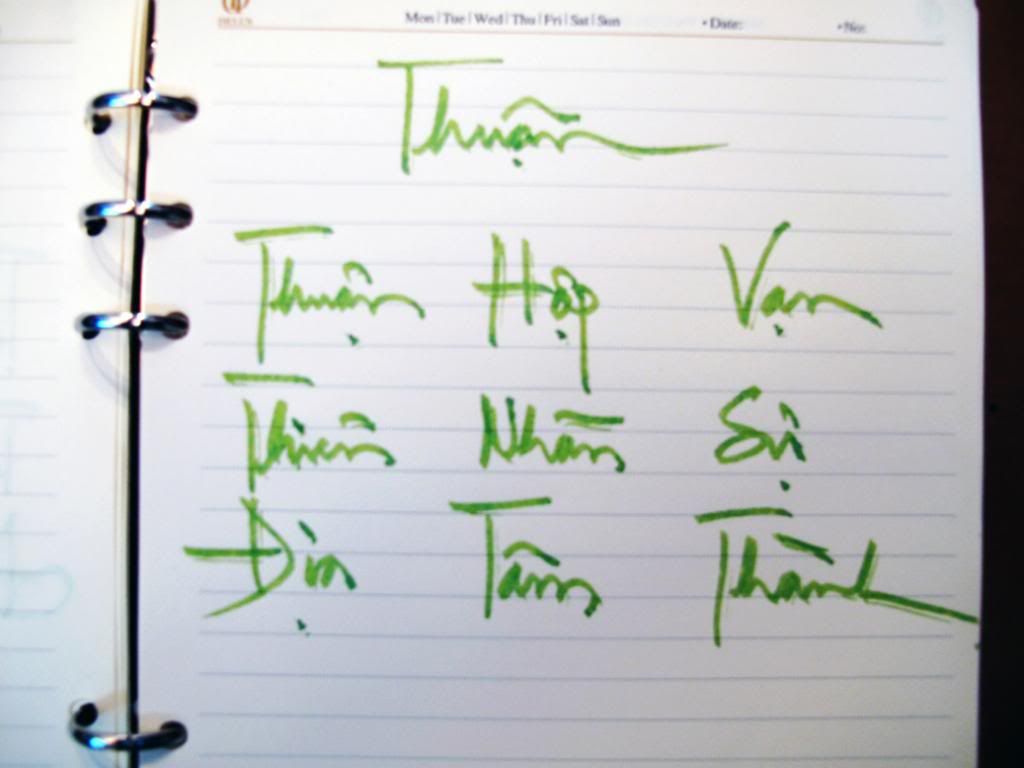 DELUX
Mon|Tue|Wed|Thu|Fri|Sat|Sun •Date: •No:
Thuận
Thuận Hợp Vạn
Thiên Nhân Sự
Địa Tâm Thành